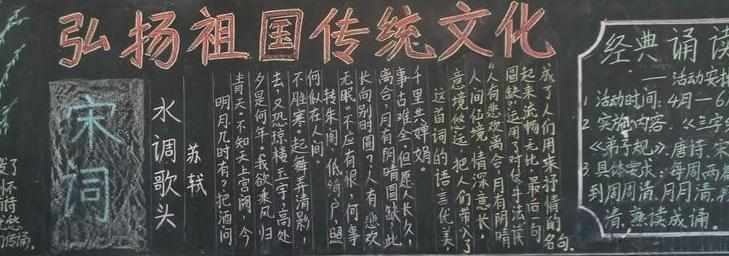 弘扬祖国传统文化
宋词
水调歌头
苏轼
明月几时有?把酒问
青天。不知天上宫阙,今
夕是何年。我欲乘风归
去,又恐琼楼玉宇,高处
不胜寒。起舞弄清影,
何似在人间。
转朱阁,低绮户,照
无眠。不应有恨,何事
长向别时圆?人有悲欢
离合,月有阴晴圆缺,此
事古难全。但愿人长久,
千里共婵娟。
这首词的语言优美
意境悠远,把人们带入了
人间仙境,情深意长。
“人有悲欢离合,月有阴晴
圆缺”运用了对仗手法读
起来流畅无比,最后一句
成了人们用来抒情的名句。
经典诵读
——活动安排
1 活动时间:4月—6
2 实施内容:《三字
《弟子规》、唐诗、宋
3 具体要求:每周两
到周周清,月月清,
清,熟读成诵。